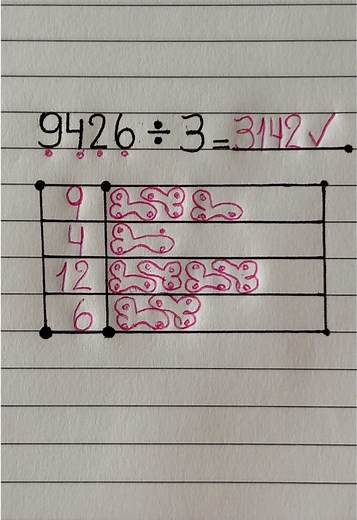 9426 ÷ 3 = 3142 ✓
9
4
12
6